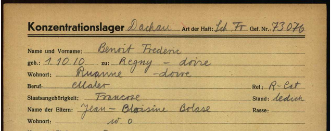 Konzentrationslager Dachau Art der Haft: Sch Fr Gef. Nr. 73076
Name und Vorname: Benoit Frederic
geb.: 1.10.10 zu: Regny - Loire
Wohnort: Roanne - Loire
Beruf: Maler Rel.: R-Cat
Staatsangehörigkeit: Francose Stand: ledich
Name der Eltern: Jean - Rasse:
Wohnort: w.o